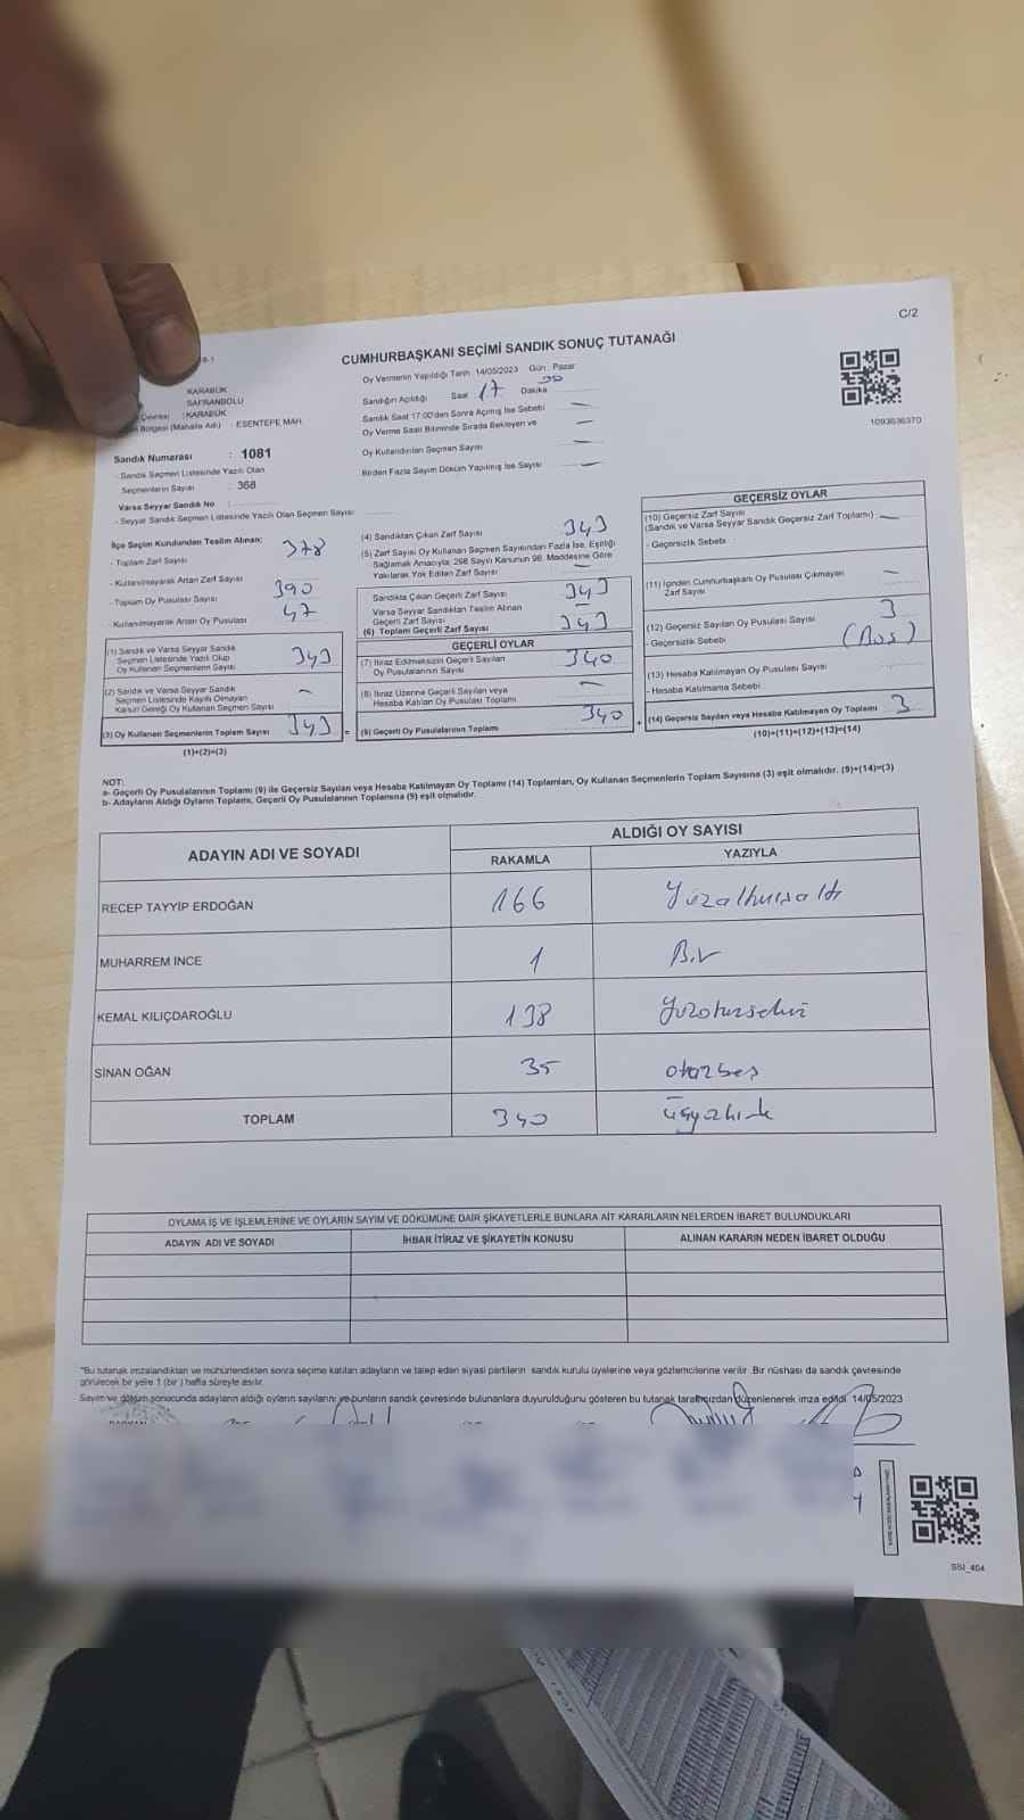 C/2
CUMHURBAŞKANI SEÇİMİ SANDIK SONUÇ TUTANAĞI
KARABÜK
SAFRANBOLU
: KARABÜK
Bölgesi (Mahalle Adı) : ESENTEPE MAH.
Sandık Numarası : 1081
- Sandık Seçmen Listesinde Yazılı Olan
Seçmenlerin Sayısı : 368
Varsa Seyyar Sandık No :
- Seyyar Sandık Seçmen Listesinde Yazılı Olan Seçmen Sayısı
Oy Vermenin Yapıldığı Tarih 14/05/2023 Gün : Pazar
Sandığın Açıldığı Saat 17 Dakika 30
Sandık Saat 17:00'den Sonra Açılmış İse Sebebi —
Oy Verme Saati Bitiminde Sırada Bekleyen ve —
Oy Kullandırılan Seçmen Sayısı —
Birden Fazla Sayım Döküm Yapılmış İse Sayısı —
1093636370
İlçe Seçim Kurulundan Teslim Alınan;
- Toplam Zarf Sayısı 378
- Kullanılmayarak Artan Zarf Sayısı
- Toplam Oy Pusulası Sayısı 390
- Kullanılmayarak Artan Oy Pusulası 47
(1) Sandık ve Varsa Seyyar Sandık
Seçmen Listesinde Yazılı Olup
Oy Kullanan Seçmenlerin Sayısı 343
(2) Sandık ve Varsa Seyyar Sandık
Seçmen Listesinde Kayıtlı Olmayan
Kanun Gereği Oy Kullanan Seçmen Sayısı —
(3) Oy Kullanan Seçmenlerin Toplam Sayısı 343 =
(1)+(2)=(3)
(4) Sandıktan Çıkan Zarf Sayısı 343
(5) Zarf Sayısı Oy Kullanan Seçmen Sayısından Fazla İse, Eşitliği
Sağlamak Amacıyla, 298 Sayılı Kanunun 98. Maddesine Göre
Yakılarak Yok Edilen Zarf Sayısı —
Sandıkta Çıkan Geçerli Zarf Sayısı 343
Varsa Seyyar Sandıktan Teslim Alınan
Geçerli Zarf Sayısı —
(6) Toplam Geçerli Zarf Sayısı 343
GEÇERLİ OYLAR
(7) İtiraz Edilmeksizin Geçerli Sayılan
Oy Pusulalarının Sayısı 340
(8) İtiraz Üzerine Geçerli Sayılan veya
Hesaba Katılan Oy Pusulası Toplamı —
(9) Geçerli Oy Pusulalarının Toplamı 340 +
GEÇERSİZ OYLAR
(10) Geçersiz Zarf Sayısı
(Sandık ve Varsa Seyyar Sandık Geçersiz Zarf Toplamı) —
- Geçersizlik Sebebi :
(11) İçinden Cumhurbaşkanı Oy Pusulası Çıkmayan
Zarf Sayısı —
(12) Geçersiz Sayılan Oy Pusulası Sayısı 3
- Geçersizlik Sebebi (Boş)
(13) Hesaba Katılmayan Oy Pusulası Sayısı
- Hesaba Katılmama Sebebi
(14) Geçersiz Sayılan veya Hesaba Katılmayan Oy Toplamı 3
(10)+(11)+(12)+(13)=(14)
NOT:
a- Geçerli Oy Pusulalarının Toplamı (9) ile Geçersiz Sayılan veya Hesaba Katılmayan Oy Toplamı (14) Toplamları, Oy Kullanan Seçmenlerin Toplam Sayısına (3) eşit olmalıdır. (9)+(14)=(3)
b- Adayların Aldığı Oyların Toplamı, Geçerli Oy Pusulalarının Toplamına (9) eşit olmalıdır.
ADAYIN ADI VE SOYADI ALDIĞI OY SAYISI
RAKAMLA YAZIYLA
RECEP TAYYİP ERDOĞAN 166 Yüzaltmışaltı
MUHARREM İNCE 1 Bir
KEMAL KILIÇDAROĞLU 138 yüzotuzsekiz
SİNAN OĞAN 35 otuzbeş
TOPLAM 340 üçyüzkırk
OYLAMA İŞ VE İŞLEMLERİNE VE OYLARIN SAYIM VE DÖKÜMÜNE DAİR ŞİKAYETLERLE BUNLARA AİT KARARLARIN NELERDEN İBARET BULUNDUKLARI
ADAYIN ADI VE SOYADI İHBAR İTİRAZ VE ŞİKAYETİN KONUSU ALINAN KARARIN NEDEN İBARET OLDUĞU
"Bu tutanak imzalandıktan ve mühürlendikten sonra seçime katılan adayların ve talep eden siyasi partilerin sandık kurulu üyelerine veya gözlemcilerine verilir. Bir nüshası da sandık çevresinde
görülecek bir yere 1 (bir ) hafta süreyle asılır.
Sayım ve döküm sonucunda adayların aldığı oyların sayılarını ve bunların sandık çevresinde bulunanlara duyurulduğunu gösteren bu tutanak tarafımızdan düzenlenerek imza edildi. 14/05/2023
SSI_404